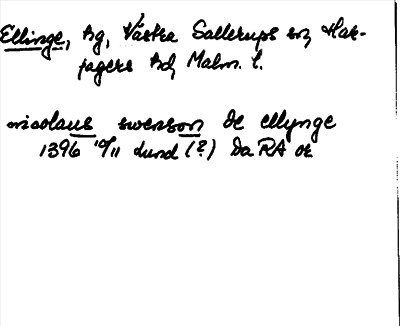 Ellinge, hg, Västra Sallerups sn, Har-
jagers hd, Malm. l.
nicolaus swenson de ellynge
1396 10/11 Lund (?) Da RA or